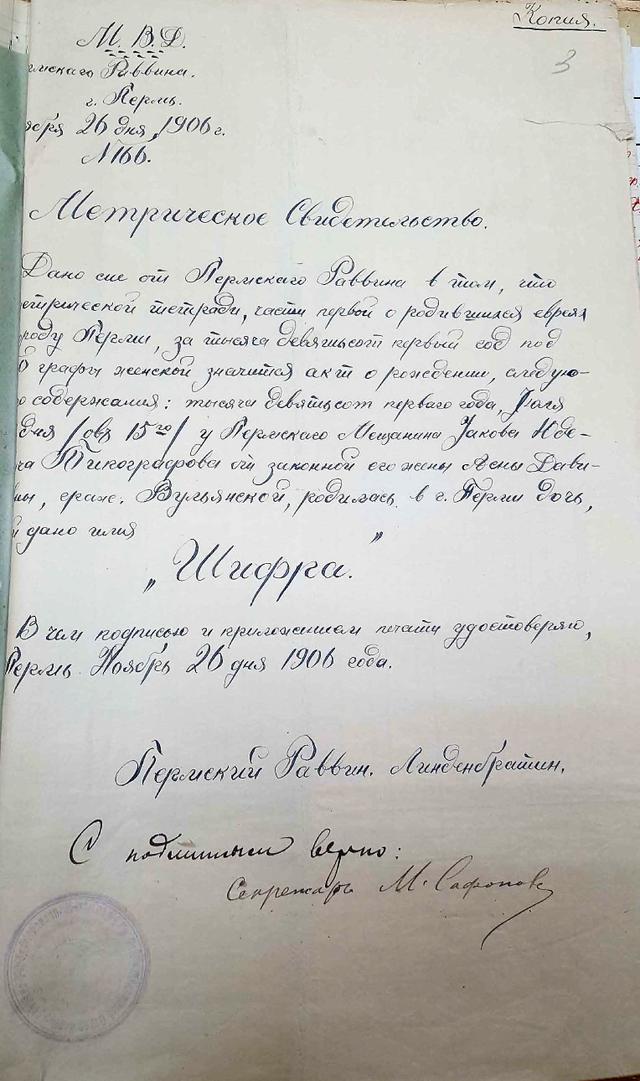 Копия.
3
М. В. Д.
рмскаго Раввина.
г. Пермь.
ября 26 дня, 1906 г.
N 166.
Метрическое Свидетельство.
Дано сие от Пермскаго Раввина в том, что
етрической тетради, части первой о родившихся евреях
роду Перми, за тысяча девятьсот первый год под
графы женской значится акт о рождении, следую-
о содержания: тысяча девятьсот перваго года,
дня /евр 15го/ у Пермскаго Мещанина Якова Юде-
ча Пикографова от законной его жены Давы-
ны, Вульянской, родилась в г. Перми дочь,
й дано имя
„Шифра."
В чем подписью и приложением печати удостоверяю,
Пермь Ноябрь 26 дня 1906 года.
Пермский Раввин. Линденбратин.
С подлинным верно:
Секретарь М. Сафонов